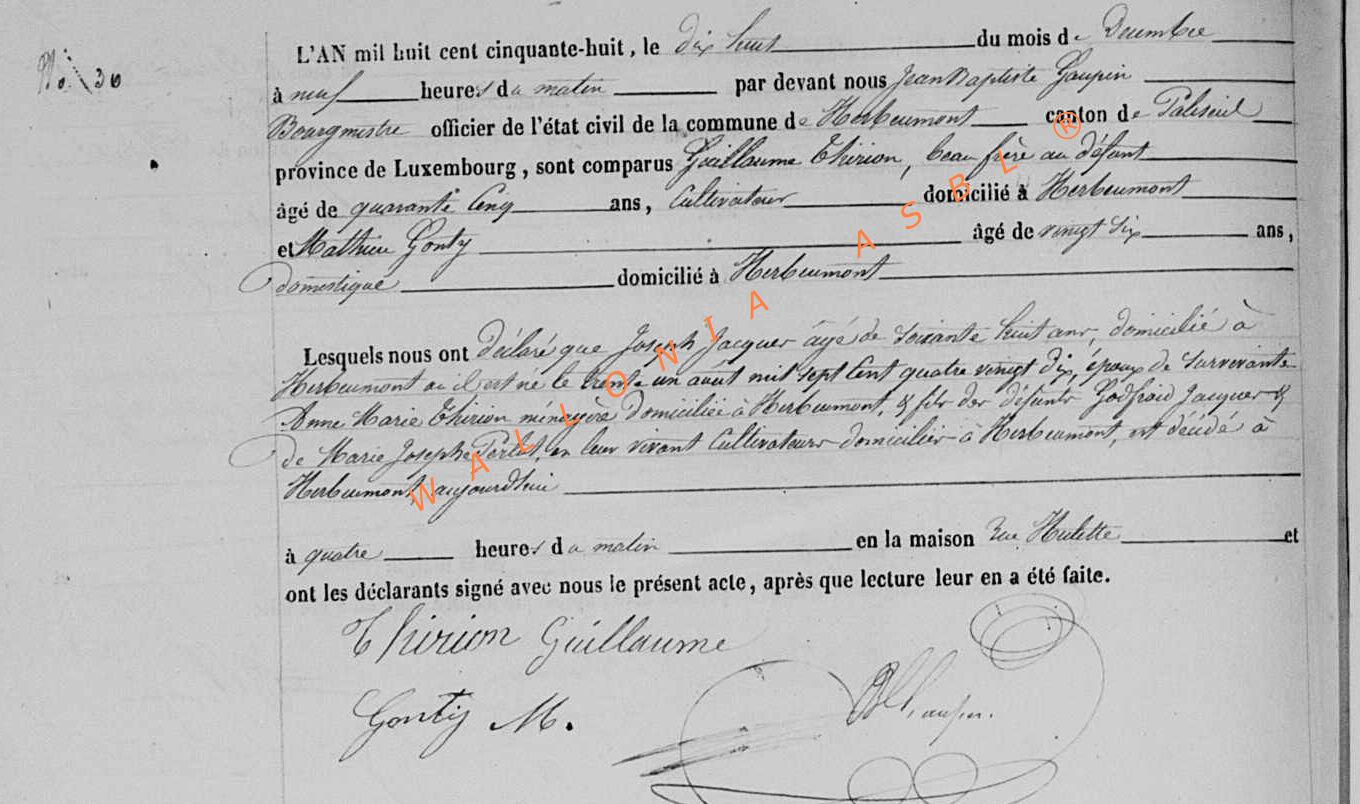 No. 30
L'AN mil huit cent cinquante-huit, le dix huit du mois de Decembre
à neuf heures du matin par devant nous Jean Baptiste Gaupin
Bourgmestre officier de l'état civil de la commune de Herbeumont canton de Paliseul
province de Luxembourg, sont comparus Guillaume Thirion, beau frère au défunt
âgé de quarante cinq ans, Cultivateur domicilié à Herbeumont
et Mathieu Gonty âgé de vingt six ans,
domestique domicilié à Herbeumont
Lesquels nous ont déclaré que Joseph Jacques âgé de soixante huit ans, domicilié à
Herbeumont où il est né le trente un août mil sept cent quatre vingt dix, époux de survivante
Anne Marie Thirion ménagère domiciliée à Herbeumont, & fils des défunts Godfroid Jacques &
de Marie Josephe Perlot, en leur vivant Cultivateurs domiciliés à Herbeumont, est décédé à
Herbeumont, aujourd'hui
à quatre heures du matin en la maison Rue Hulette et
ont les déclarants signé avec nous le présent acte, après que lecture leur en a été faite.
Thirion Guillaume
Gonty M.
WALLONIA ASBL ®